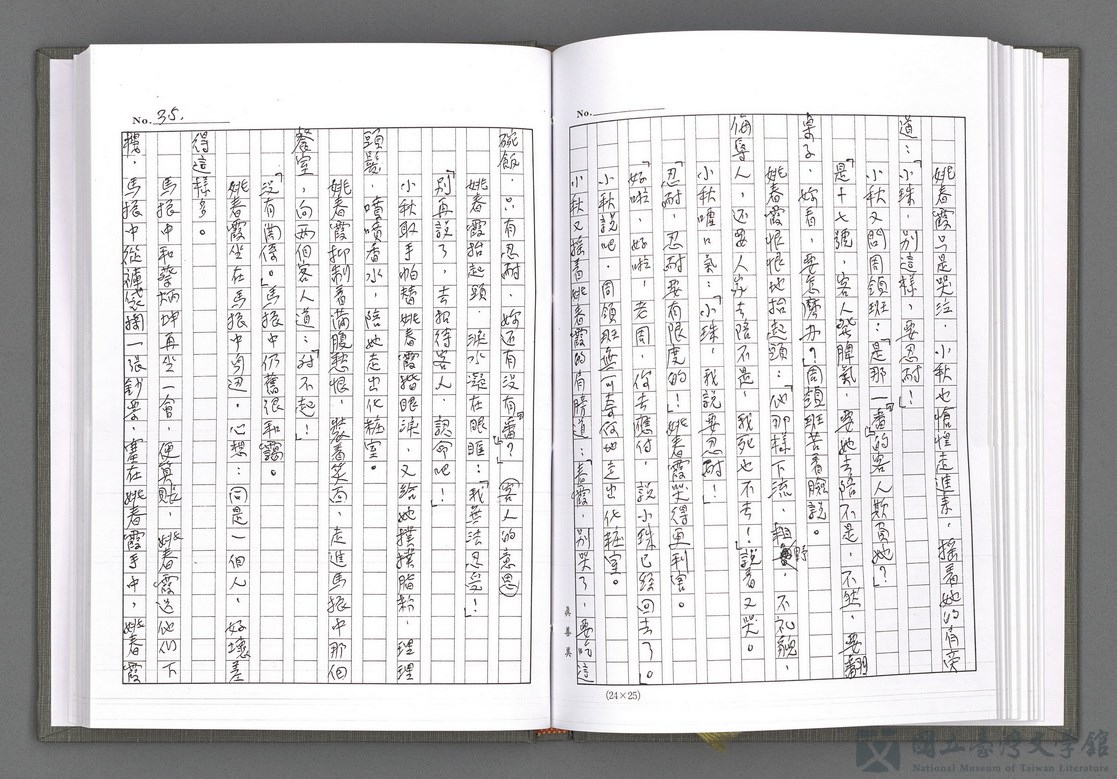 No.
姚春霞只是哭泣，小秋也愴惶走進來，搖着她的肩旁
道：「小珠，別這樣，要忍耐！」
小秋又問周領班：「是那一番的客人欺負她？」
「是十七號，客人發脾氣，要她去陪不是，不然，要翻
桌子，妳看，要怎麼办？」周領班苦着臉說。
姚春霞恨恨地抬起頭：「他那樣下流，粗野，不礼貌，
侮辱人，还要人家去陪不是，我死也不去！」說着又哭。
小秋嘘口氣：「小珠，我說要忍耐！」
「忍耐，忍耐要有限度的！」姚春霞哭得更利害。
「好啦，好啦，老周，你去應付，說小珠已經回去了。」
小秋說吧，周領班無可奈何地走出化粧室。
小秋又搖着姚春霞的肩膀道：「春霞，別哭了，要吃這
眞善美
(24×25)
No. 35.
碗飯，只有忍耐，妳还有没有番？（客人的意思）」
姚春霞抬起頭，淚水凝在眼眶：「我無法忍受！」
「別再說了，去招待客人，認命吧！」
小秋取手帕替姚春霞揩眼淚，又給她撲撲脂粉，理理
頭髮，噴噴香水，陪她走出化粧室。
姚春霞抑制着滿腹愁恨，裝着笑面，走進馬振中那個
餐室，向两個客人道：「对不起！」
「没有関係。」馬振中仍舊很和靄。
姚春霞坐在馬振中旁边，心想：同是一個人，好壞差
得這樣多。
馬振中和發炳坤再坐一會，便算賬，姚春霞送他们下
樓，馬振中從褲袋掏一張鈔票，塞在姚春霞手中，姚春霞
國立臺灣文學館
National Museum of Taiwan Literature